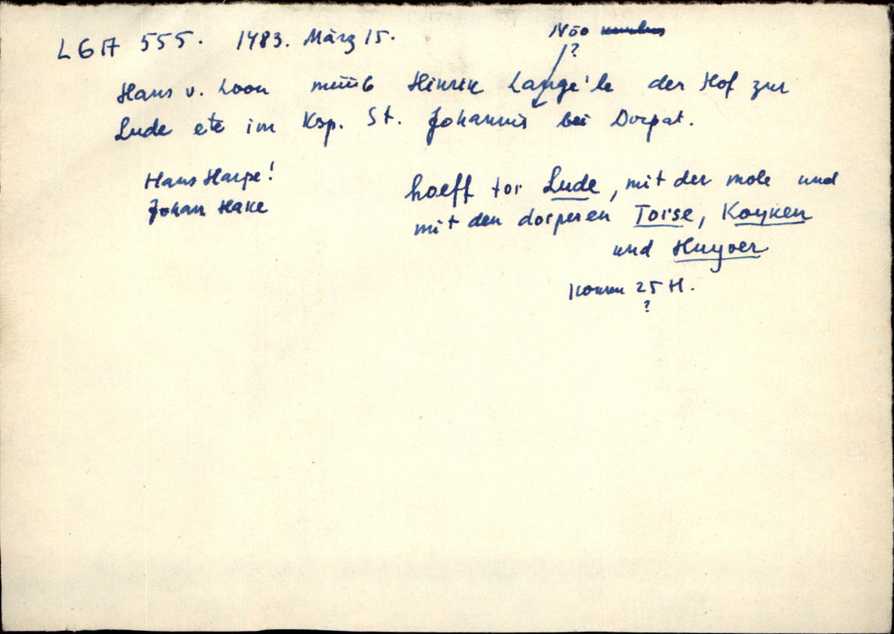 Nõo
LGA 555. 1483. März 15.
?
Hans v. Loon Hinrik Lange'le der Hof zur
Lude etc im Ksp. St. Johannis bei Dorpat.
Hans Harpe!
Johan Hake
hoeff tor Lude, mit der mole und
mit den dorperen Torse, Koyken
und Huyver
25 H.
?